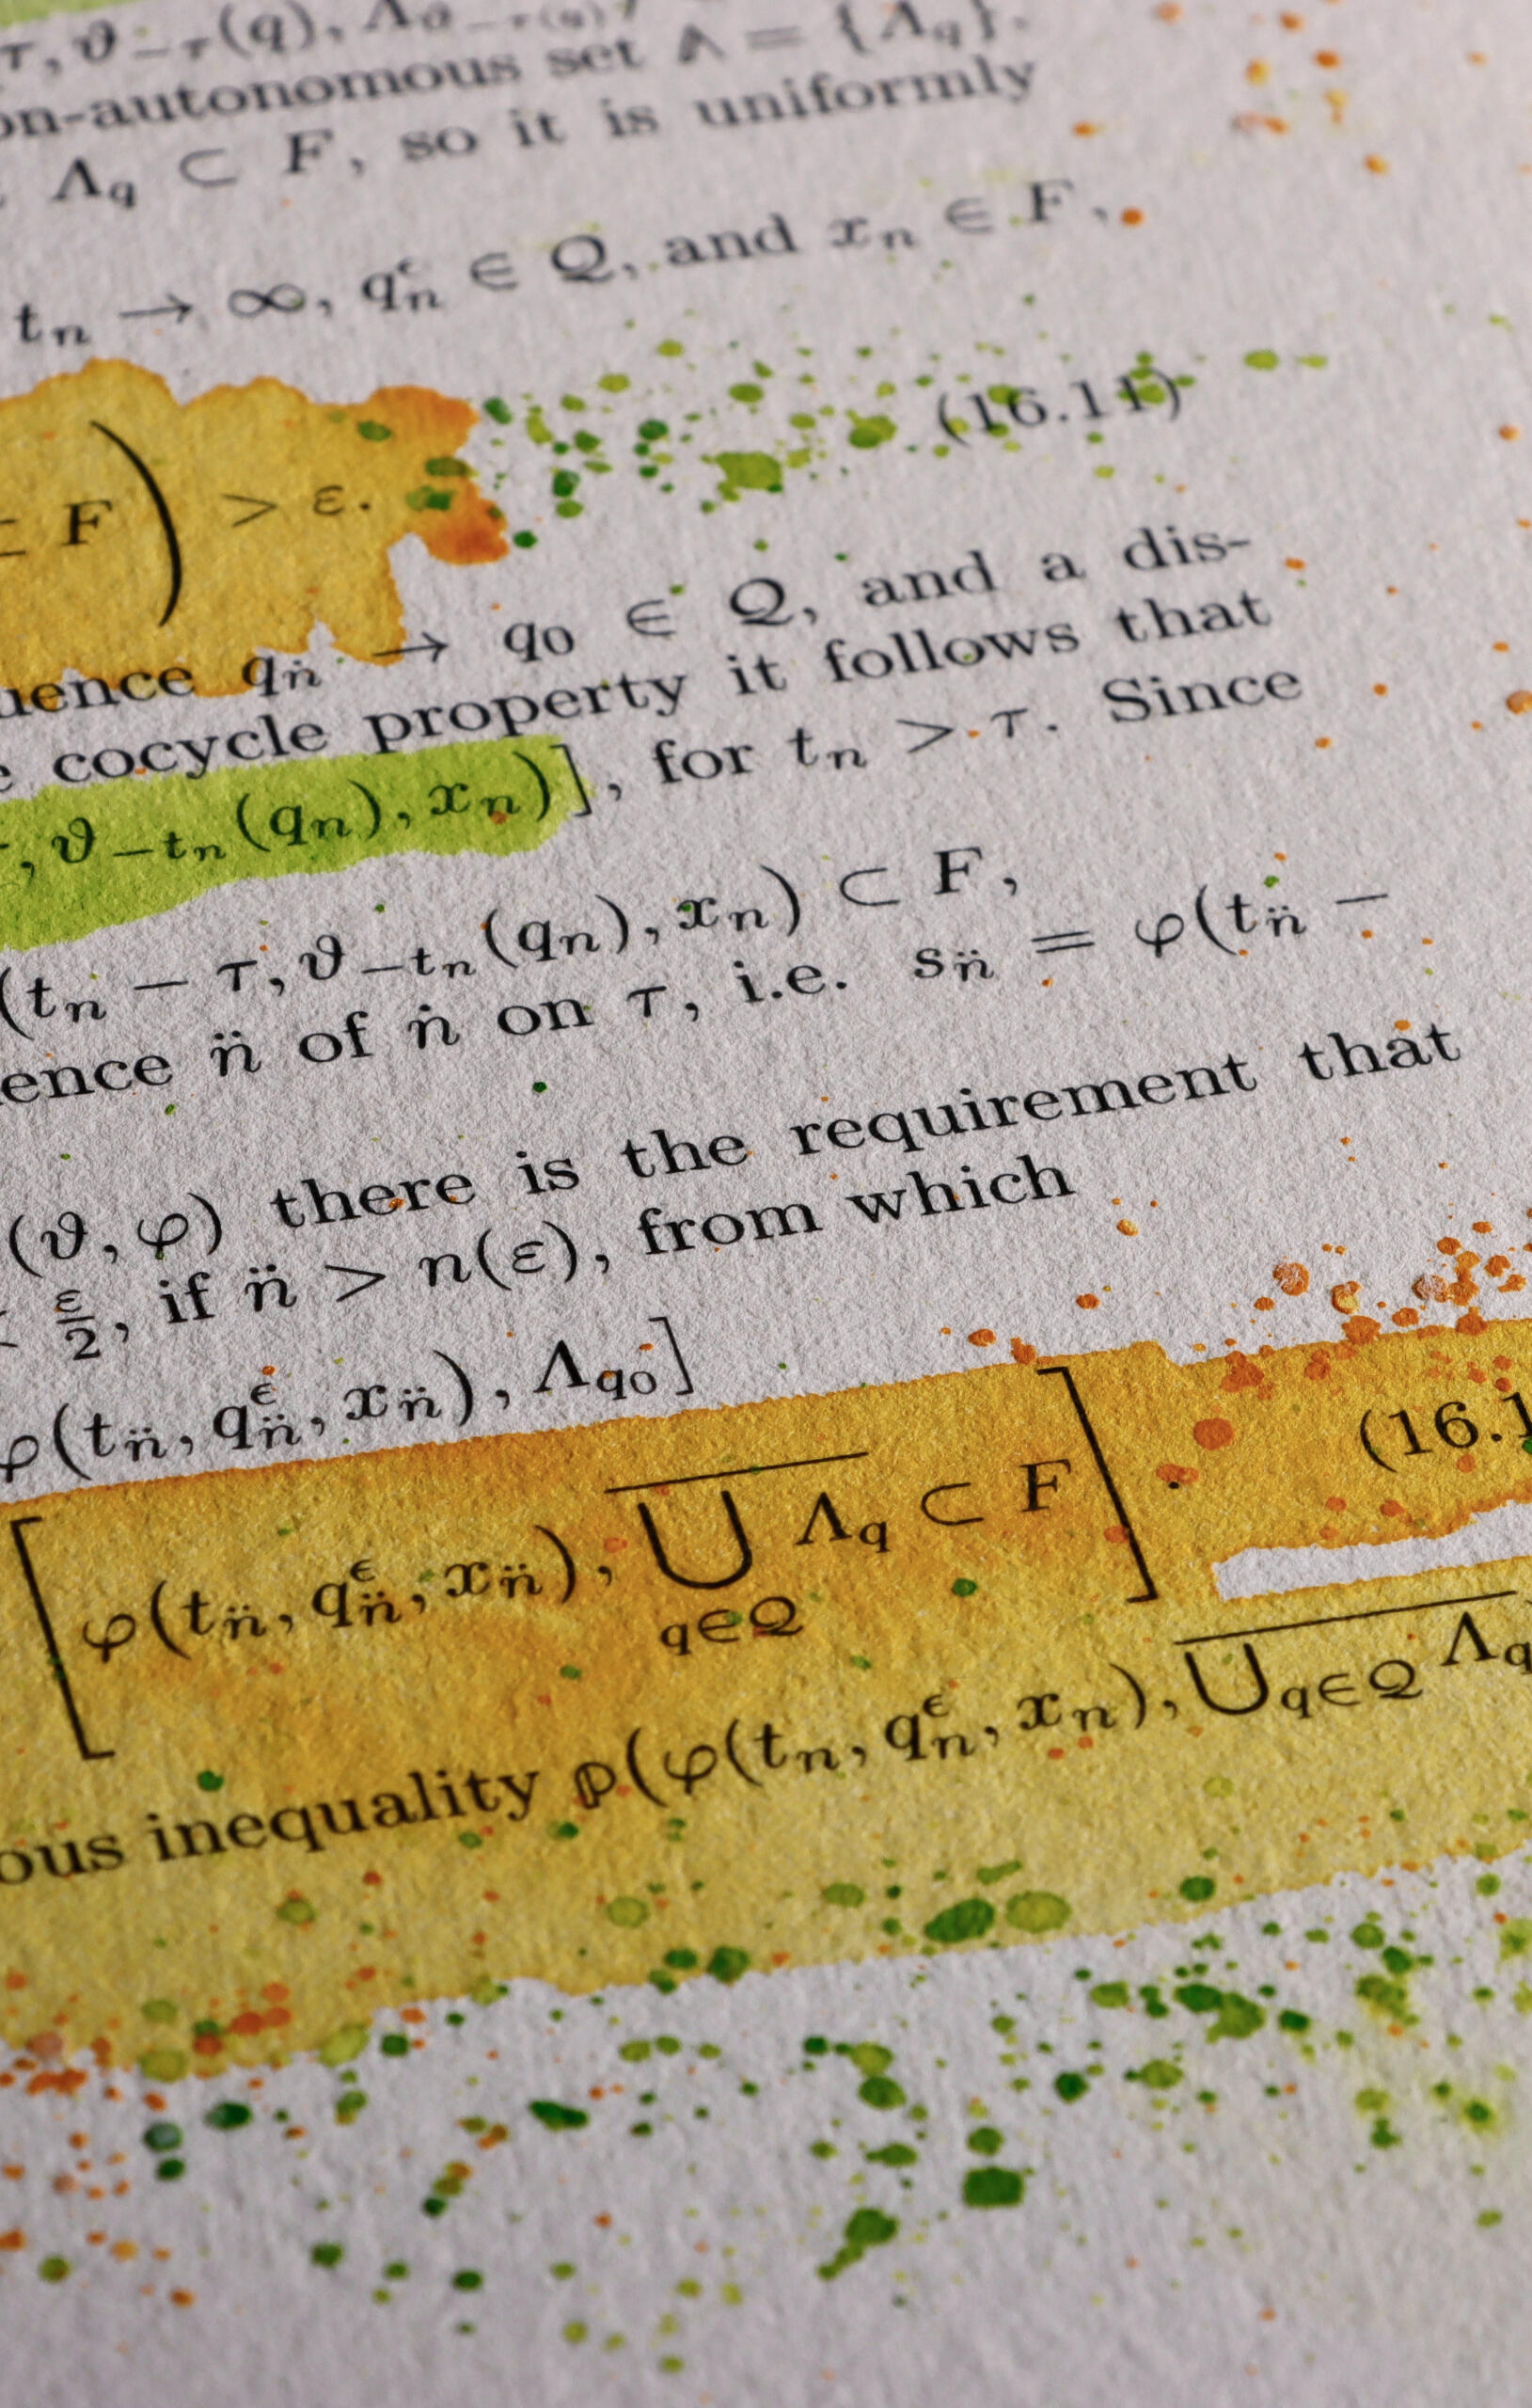 τ, ϑ₋τ(q), Λ
on-autonomous set 𝔸 = {Λ_q}.
Λ_q ⊂ F, so it is uniformly
t_n → ∞, q_n^ϵ ∈ Q, and x_n ∈ F,
(16.11)
F) > ε.
uence q_ṅ → q_0 ∈ Q, and a dis-
e cocycle property it follows that
, ϑ_{-t_n}(q_n), x_n)], for t_n > τ. Since
(t_n − τ, ϑ_{-t_n}(q_n), x_n) ⊂ F,
ence n̈ of ṅ on τ, i.e. s_n̈ = φ(t_n̈ −
(ϑ, φ) there is the requirement that
ε/2, if n̈ > n(ε), from which
φ(t_n̈, q_n̈^ϵ, x_n̈), Λ_{q_0}]
[φ(t_n̈, q_n̈^ϵ, x_n̈), \overline{⋃_{q∈Q} Λ_q} ⊂ F]. (16.1
ous inequality ℙ(φ(t_n, q_n^ϵ, x_n), \overline{⋃_{q∈Q} Λ_q}